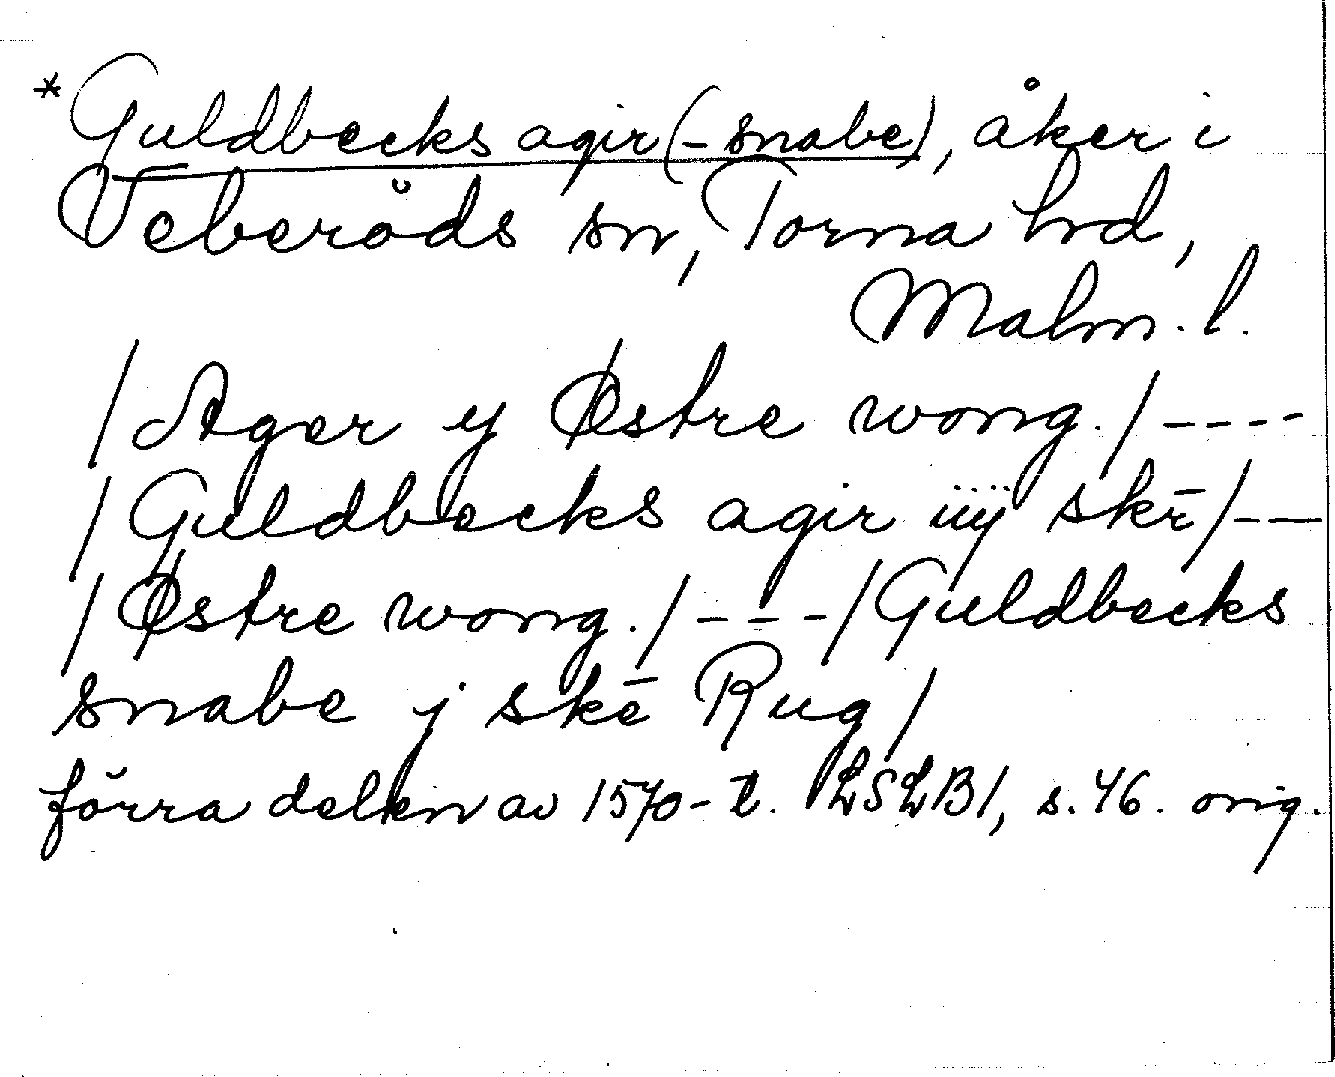 *Guldbecks agir (-snabe), åker i
Veberöds sn, Torna hrd,
Malm. l.
/Ager y Østre wong./----
/Guldbecks agir iiij skē/--
/Østre wong./---/Guldbecks
snabe j skē Rug/
förra delen av 1570-t. LSLB1, s. 46. orig.